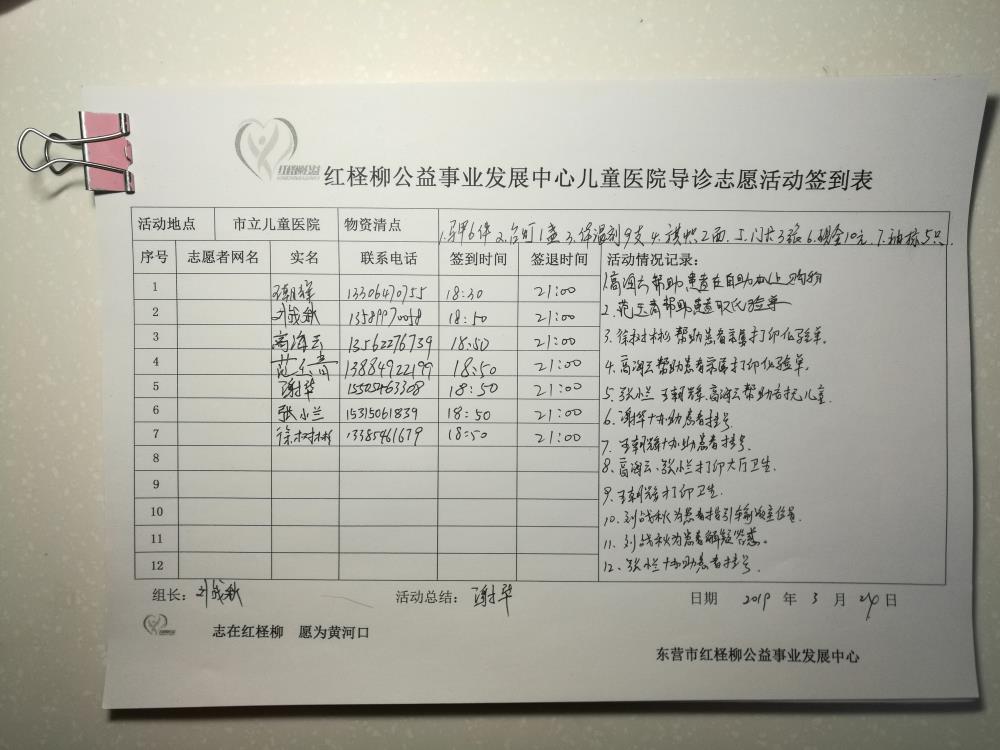 红柽柳公益
红柽柳公益事业发展中心儿童医院导诊志愿活动签到表
活动地点 市立儿童医院 物资清点 1.马甲6件 2.台可1盒 3.体温剂9支 4.旗帜2面 5.门卡3张 6.现金10元 7.袖标5只.
序号 志愿者网名 实名 联系电话 签到时间 签退时间 活动情况记录:
1 13306470755 18:30 21:00 1.高海云帮助患者在自助机上
2 刘战秋 13589970058 18:50 21:00 2.范玉青帮助患者取化验单
3 高海云 13562276739 18:50 21:00 3.徐树彬帮助患者亲属打印化验单.
4 范玉青 13884922199 18:50 21:00 4.高海云帮助患者亲属打印化验单.
5 谢华 15505463308 18:50 21:00 5.张小兰 王朝辉 高海云帮助 儿童.
6 张小兰 15315061839 18:50 21:00 6.谢华协助患者挂号
7 徐树彬 13385461679 18:50 21:00 7.王朝辉协助患者挂号.
8 8.高海云、张小兰打印大厅卫生.
9 9.王朝辉打印卫生.
10 10.刘战秋为患者指引输液室位置.
11 11.刘战秋为患者解疑答惑。
12 12.张小兰协助患者挂号.
组长: 刘战秋 活动总结: 谢华 日期 2019 年 3 月 20 日
志在红柽柳 愿为黄河口
东营市红柽柳公益事业发展中心